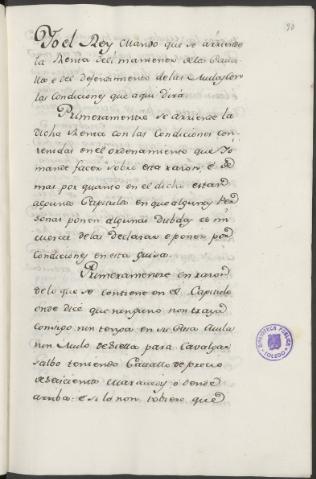 90
Yo el Rey Mando que se arriende
la Renta del mantener de los Cava
llos e del defendimiento de las Mulas con
las condiciones que aqui dirá
Primeramente se arriende la
dicha Renta con las Condiciones con
tenidas en el ordenamiento que Yo
mandé facer sobre esta razon, e de
mas por quanto en el dicho estan
algunos Capitulos en que algunas Per
sonas ponen algunas Dubdas es mi
merced de las declarar e poner por
Condiciones en esta guisa.
Primeramente en razon
de lo que se contiene en el Capitulo
en de dice que ninguno non traya
consigo nin tenga en su Casa Mula
nin Mulo de silla para Cavalgar
salbo teniendo Cavallo de precio
de seiscientos maravedis o dende
arriba: e si lo non tobiere que
BIBLIOTECA PUBLICA
TOLEDO